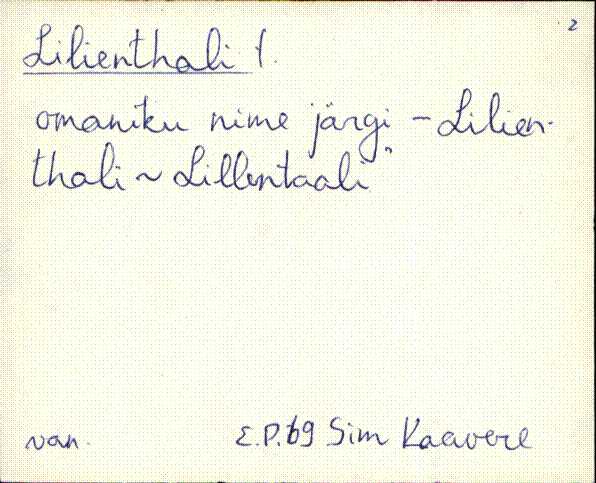 2
Lilienthali t.
omaniku nime järgi – Lilien-
thali ~ Lillentaali"
van. E.P.69 Sim Kaavere